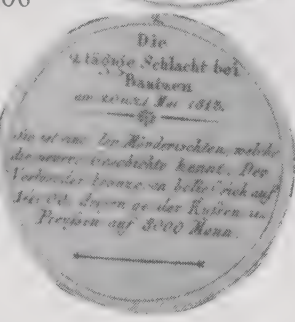 06
Die
2 tägige Schlacht bei
Bautzen
am 20 u 21 Mai 1813.
Sie ist eine der Mörderischten, welche
die neuere Geschichte kennt. Der
Verlust der belief sich auf
der Russen u.
Preußen auf 8000 Mann.